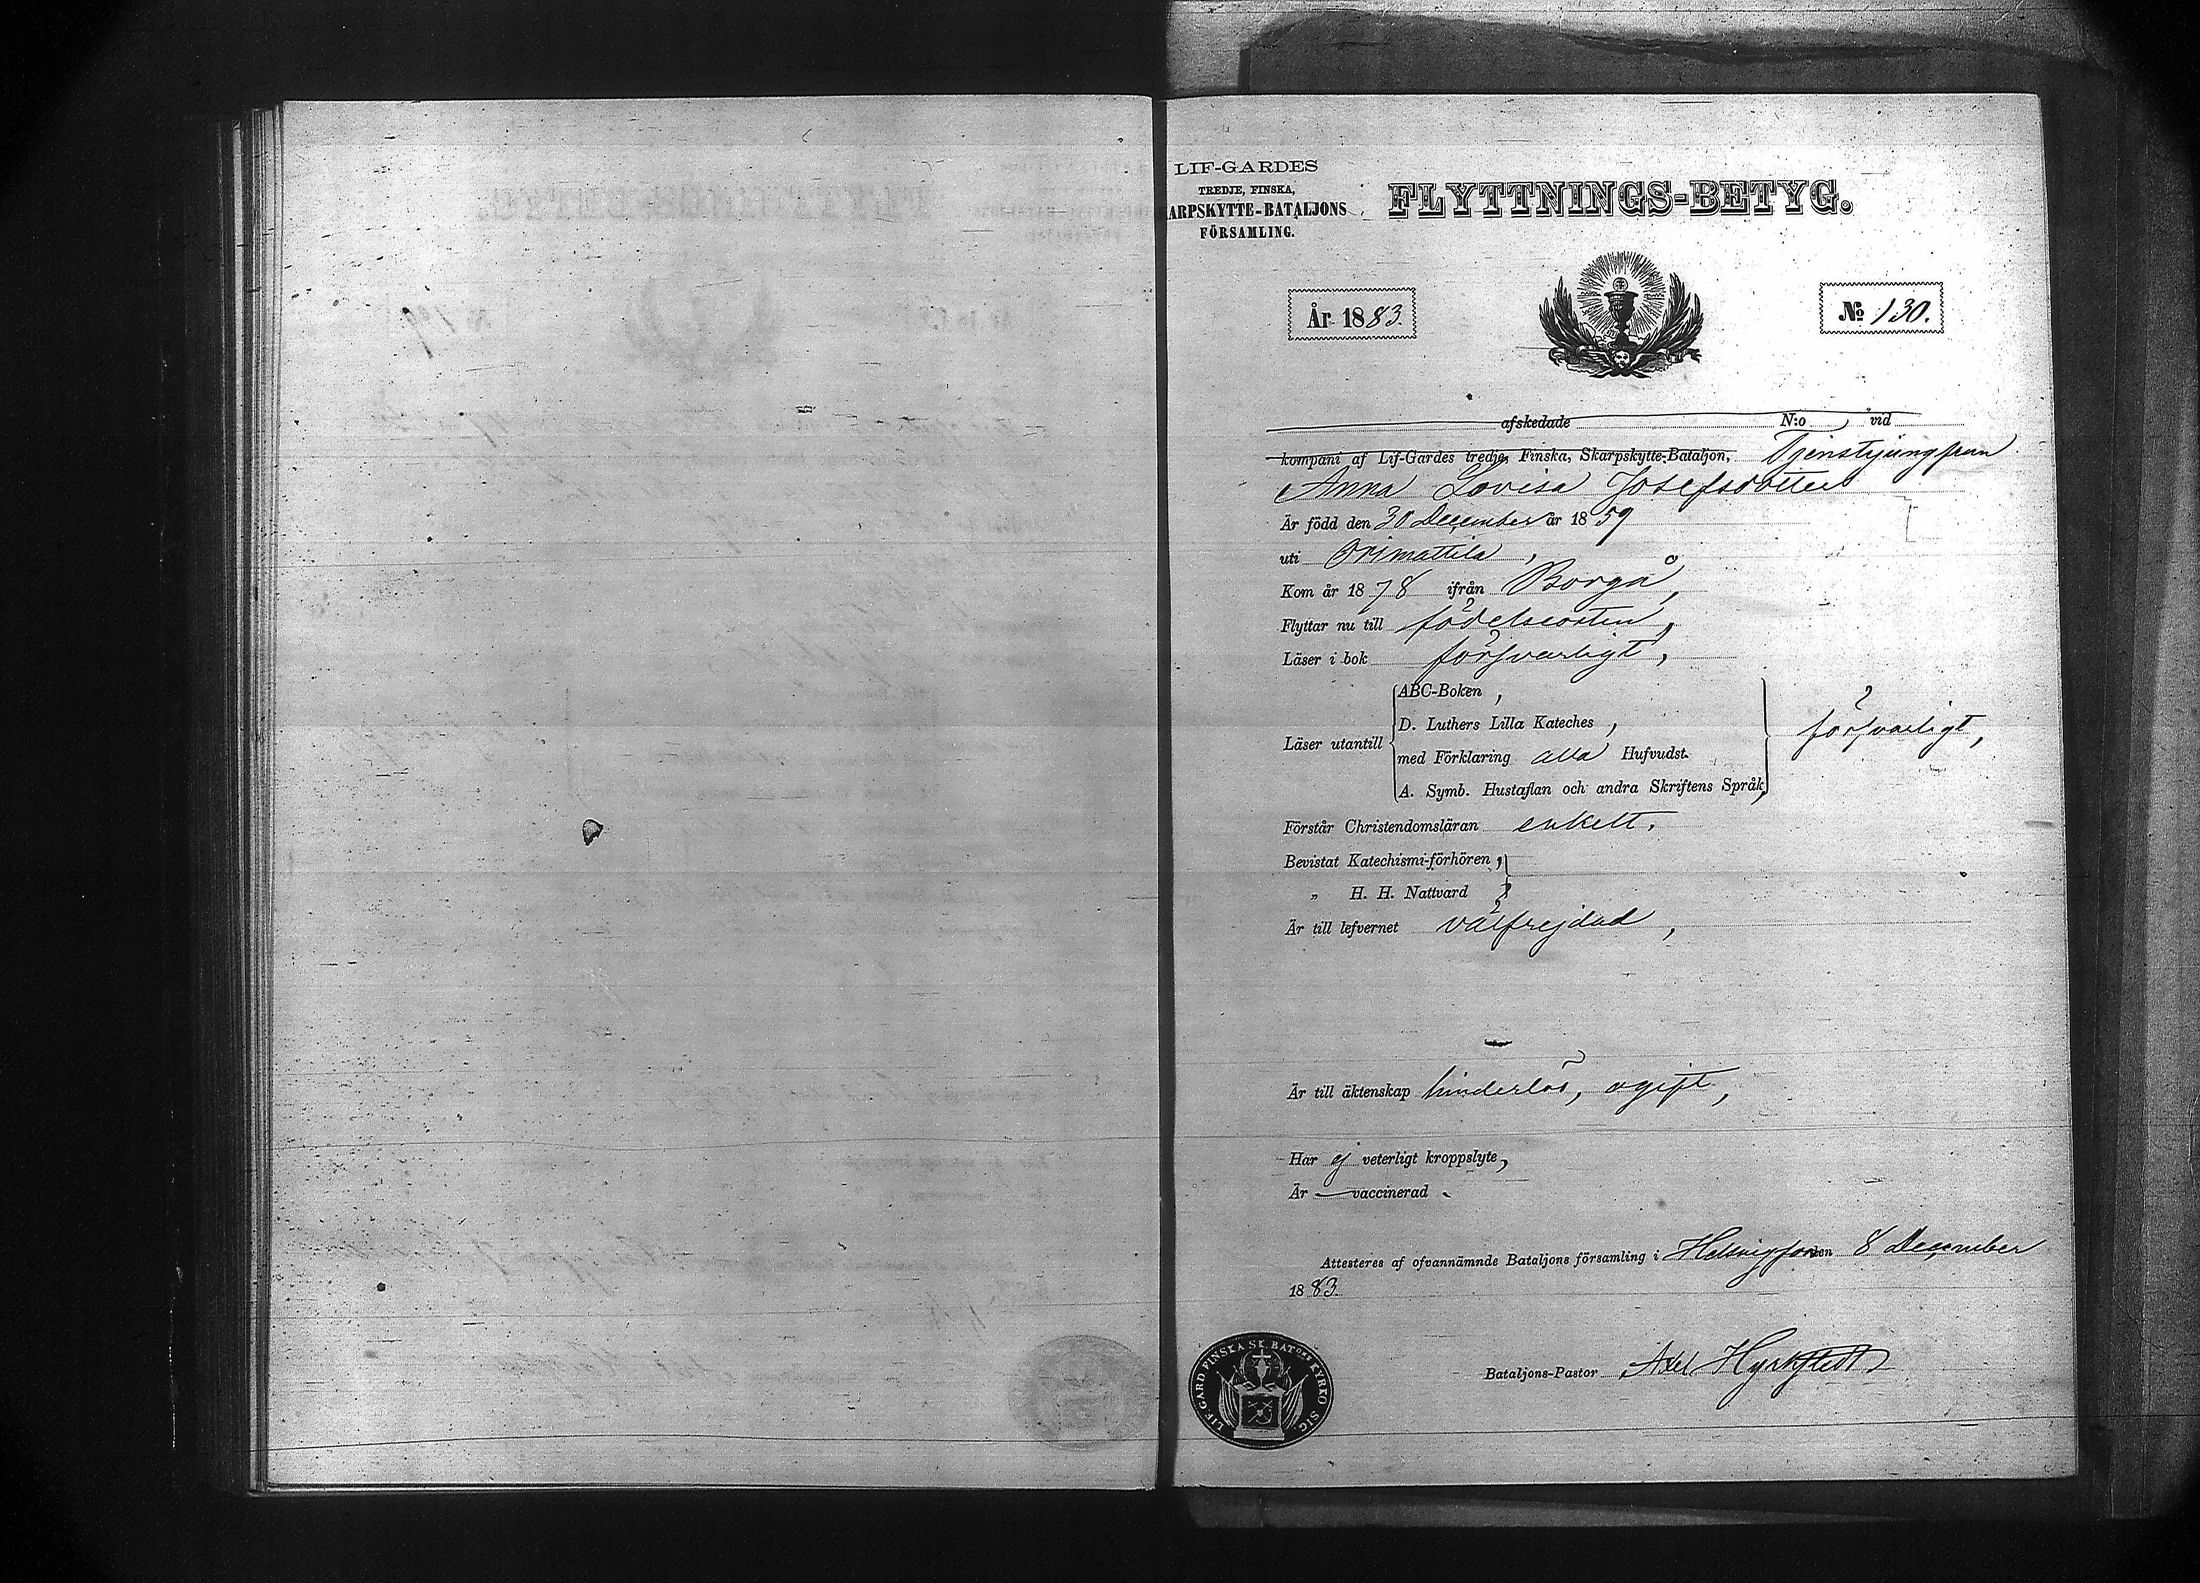 LIF-GARDES
TREDJE, FINSKA,
ARPSKYTTE-BATALJONS
FÖRSAMLING.
FLYTTNINGS-BETYG.
År 1883.
№ 130.
afskedade N:o vid
kompani af Lif-Gardes tredje, Finska, Skarpskytte-Bataljon, Tjenstejungfrun
Anna Lovisa Josefsdotter
Är född den 30 December år 1859
uti Orimattila,
Kom år 1878 ifrån Borgå,
Flyttar nu till födelseorten,
Läser i bok försvarligt,
Läser utantill
ABC-Boken,
D. Luthers Lilla Kateches,
med Förklaring alla Hufvudst.
A. Symb. Hustaflan och andra Skriftens Språk,
försvarligt,
Förstår Christendomsläran enkelt.
Bevistat Katechismi-förhören,
„ H. H. Nattvard
Är till lefvernet välfrejdad,
Är till äktenskap hinderlös, ogift,
Har ej veterligt kroppslyte,
Är vaccinerad.
Attesteres af ofvannämnde Bataljons församling i Helsingfors den 8 December
1883.
Bataljons-Pastor Axel Hyrkstedt
LIF-GARD. FINSKA SK. BATONS KYRKO SIG.